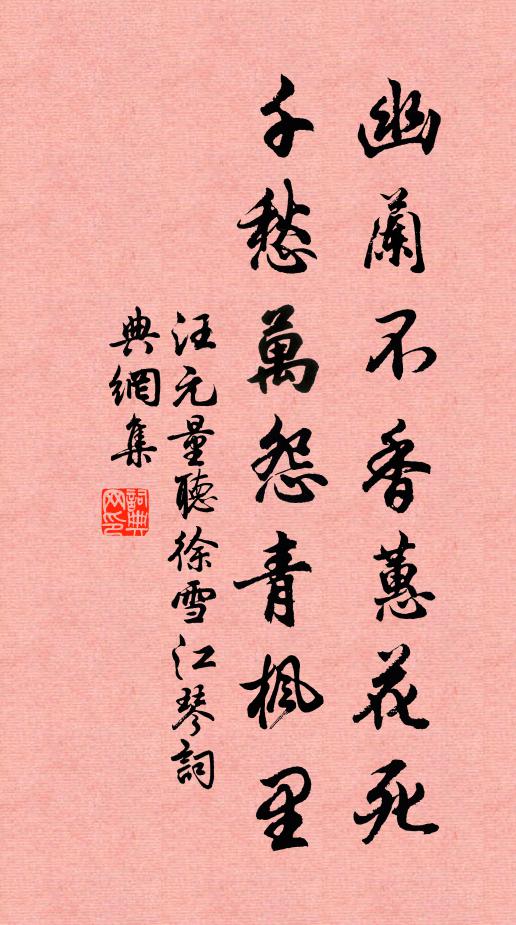 幽蘭不香蕙花死
千愁萬怨青楓里
汪元量聽徐雪江琴詞
典網集
詞典
网印